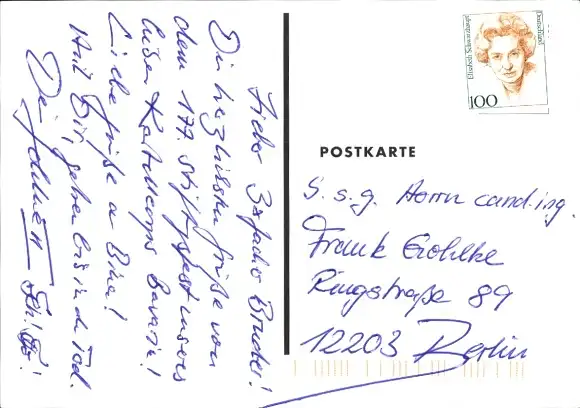 Lieber 3xfacher Bruder!
Die herzlichsten Grüße von
dem 177. Stiftungsfest unseres
lieben Kartellcorps Bavaria!
Liebe Grüße a Bine!
Mit Dir, gehe bis in de Tod.
Dein
Elisabeth Schwarzhaupt
Deutschland
100
POSTKARTE
S. s. g. Herrn cand. ing.
Frank Grohlke
Ringstraße 89
12203 Berlin